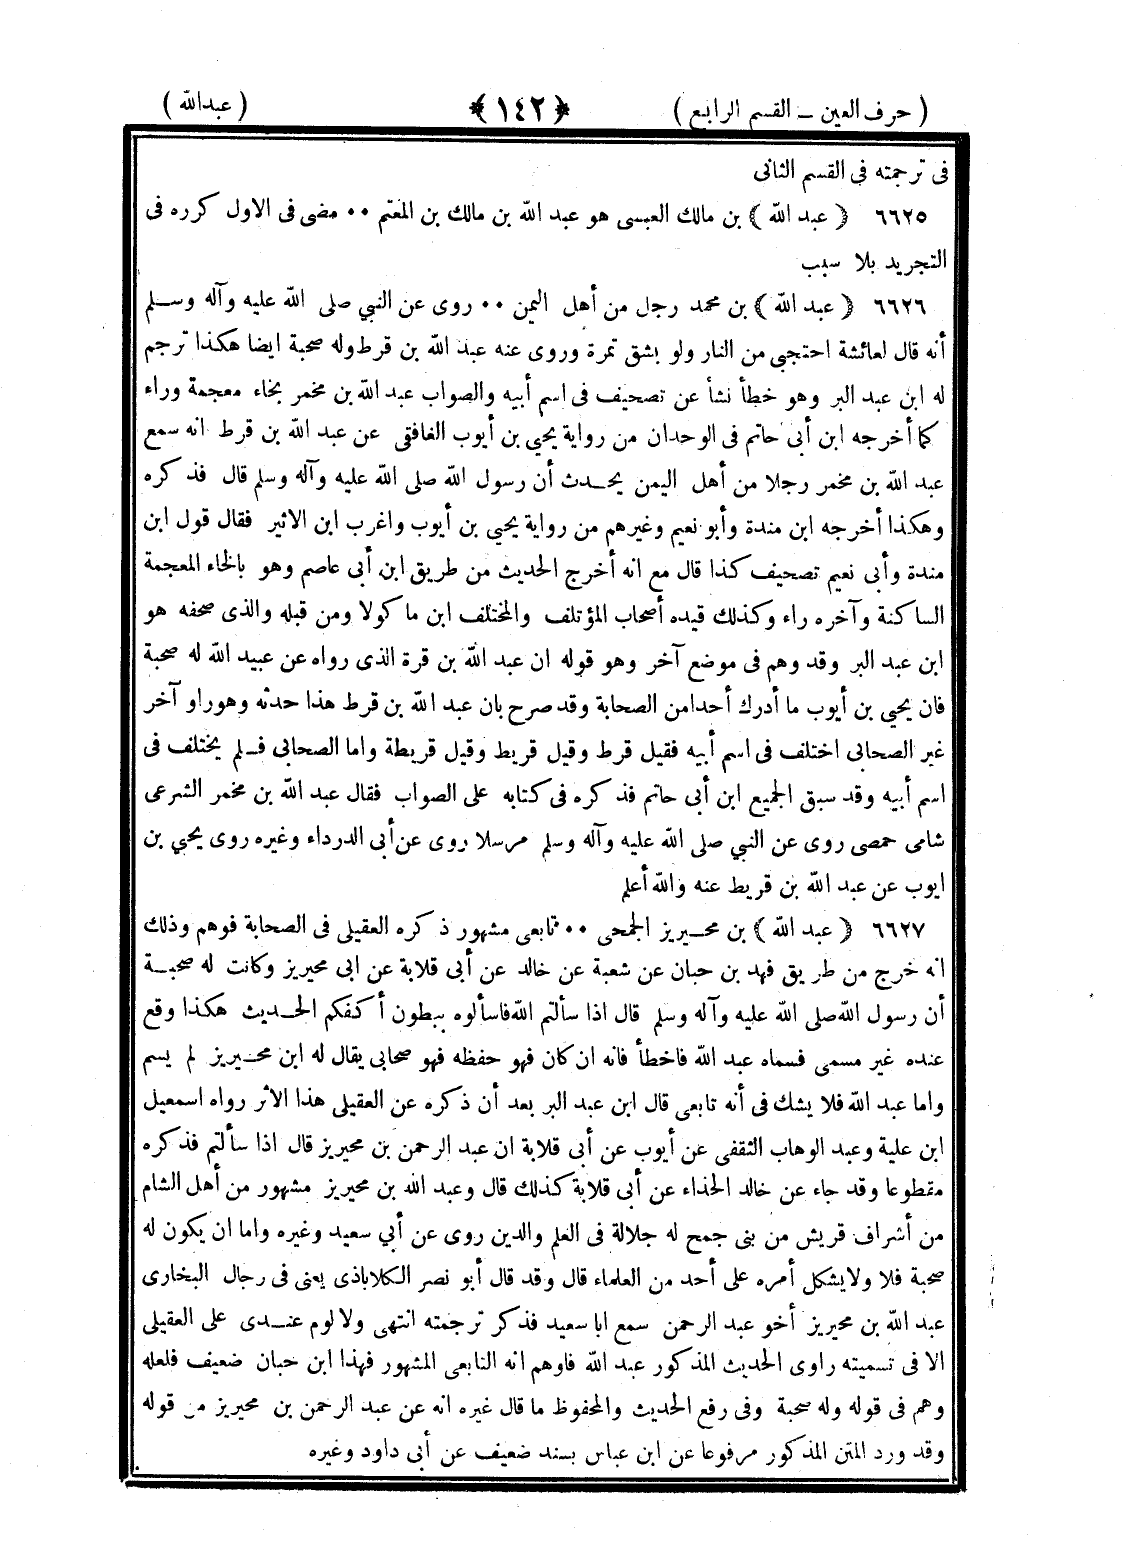 ( حرف العين – القسم الرابع ) ﴿ ١٤٢ ﴾ ( عبدالله )
فى ترجمته فى القسم الثانى
٦٦٢٥ ﴿ عبد الله ﴾ بن مالك العبسى هو عبد الله بن مالك بن المعتم ٠٠ مضى فى الاول كرره فى
التجريد بلا سبب
٦٦٢٦ ﴿ عبد الله ﴾ بن محمد رجل من أهل اليمن ٠٠ روى عن النبي صلى الله عليه وآله وسلم
أنه قال لعائشة احتجبى من النار ولو بشق تمرة وروى عنه عبد الله بن قرط وله صحبة ايضا هكذا ترجم
له ابن عبد البر وهو خطأ نشأ عن تصحيف فى اسم أبيه والصواب عبد الله بن مخمر بخاء معجمة وراء
كما أخرجه ابن أبى حاتم فى الوحدان من رواية يحيى بن أيوب الغافقى عن عبد الله بن قرط انه سمع
عبد الله بن مخمر رجلا من أهل اليمن يحدث أن رسول الله صلى الله عليه وآله وسلم قال فذكره
وهكذا أخرجه ابن مندة وأبو نعيم وغيرهم من رواية يحيى بن أيوب واغرب ابن الاثير فقال قول ابن
مندة وأبى نعيم تصحيف كذا قال مع انه أخرج الحديث من طريق ابن أبى عاصم وهو بالخاء المعجمة
الساكنة وآخره راء وكذلك قيده أصحاب المؤتلف والمختلف ابن ماكولا ومن قبله والذى صحفه هو
ابن عبد البر وقد وهم فى موضع آخر وهو قوله ان عبد الله بن قرة الذى رواه عن عبيد الله له صحبة
فان يحيى بن أيوب ما أدرك أحدا من الصحابة وقد صرح بان عبد الله بن قرط هذا حدثه وهو راو آخر
غير الصحابى اختلف فى اسم أبيه فقيل قرط وقيل قريط وقيل قريطة واما الصحابى فلم يختلف فى
اسم أبيه وقد سبق الجميع ابن أبى حاتم فذكره فى كتابه على الصواب فقال عبد الله بن مخمر الشرعى
شامى حمصى روى عن النبي صلى الله عليه وآله وسلم مرسلا روى عن أبى الدرداء وغيره روى يحيى بن
ايوب عن عبد الله بن قريط عنه والله أعلم
٦٦٢٧ ﴿ عبد الله ﴾ بن محيريز الجمحى ٠٠ تابعى مشهور ذكره العقيلى فى الصحابة فوهم وذلك
انه خرج من طريق فهد بن حبان عن شعبة عن خالد عن أبى قلابة عن ابى محيريز وكانت له صحبة
أن رسول الله صلى الله عليه وآله وسلم قال اذا سألتم الله فاسألوه ببطون أكفكم الحديث هكذا وقع
عنده غير مسمى فسماه عبد الله فاخطأ فانه ان كان فهو حفظه فهو صحابى يقال له ابن محيريز لم يسم
واما عبد الله فلا يشك فى أنه تابعى قال ابن عبد البر بعد أن ذكره عن العقيلى هذا الاثر رواه اسمعيل
ابن علية وعبد الوهاب الثقفى عن أيوب عن أبى قلابة ان عبد الرحمن بن محيريز قال اذا سألتم فذكره
مقطوعا وقد جاء عن خالد الحذاء عن أبى قلابة كذلك قال وعبد الله بن محيريز مشهور من أهل الشام
من أشراف قريش من بنى جمح له جلالة فى العلم والدين روى عن أبي سعيد وغيره واما ان يكون له
صحبة فلا ولا يشكل أمره على أحد من العلماء قال وقد قال أبو نصر الكلاباذى يعنى فى رجال البخارى
عبد الله بن محيريز أخو عبد الرحمن سمع ابا سعيد فذكر ترجمته انتهى ولا لوم عندى على العقيلى
الا فى تسميته راوى الحديث المذكور عبد الله فاوهم انه التابعى المشهور فهذا ابن حبان ضعيف فلعله
وهم فى قوله وله صحبة وفى رفع الحديث والمحفوظ ما قال غيره انه عن عبد الرحمن بن محيريز من قوله
وقد ورد المتن المذكور مرفوعا عن ابن عباس بسند ضعيف عن أبى داود وغيره